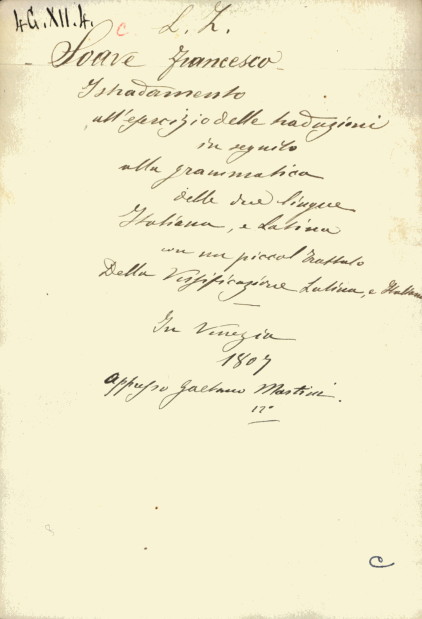 4G.XII.4.
c L. Z.
Soave Francesco
Istradamento
all'esercizio delle traduzioni
in seguito
alla grammatica
delle due lingue
Italiana, e Latina
con un piccol Trattato
Della Versificazione Latina, e Italiana
In Venezia
1807
Appresso Gaetano Martini.
12°
C